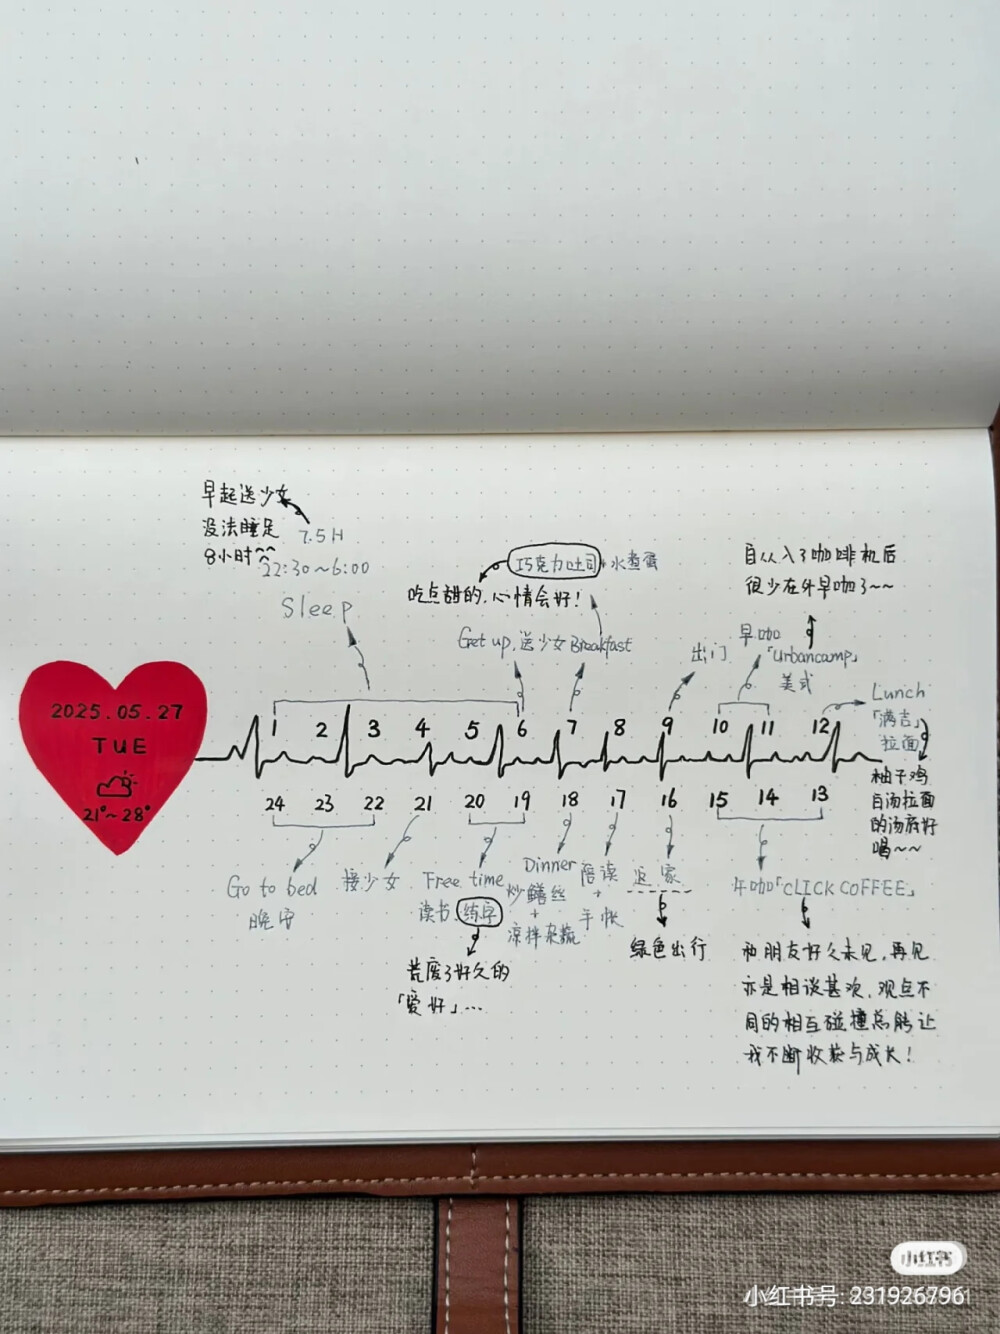 早起送少女
没法睡足
8小时~~
7.5H
22:30~6:00
Sleep
巧克力吐司+水煮蛋
吃点甜的,心情会好!
Get up,送少女
Breakfast
自从入了咖啡机后
很少在外早咖了~~
出门
早咖
「Urbancamp」
美式
Lunch
「满吉」
拉面
柚子鸡
白汤拉面
的汤底好
喝~~
2025.05.27
TUE
21°~28°
1 2 3 4 5 6 7 8 9 10 11 12
24 23 22 21 20 19 18 17 16 15 14 13
Go to bed
晚安
接少女
Free time
读书、练字
荒废了好久的
「爱好」...
Dinner
炒鳝丝
+
凉拌杂蔬
陪读
+
手帐
返家
绿色出行
午咖「CLICK COFFEE」
和朋友好久未见,再见
亦是相谈甚欢,观点不
同的相互碰撞总能让
我不断收获与成长!
小红书
小红书号: 231926796